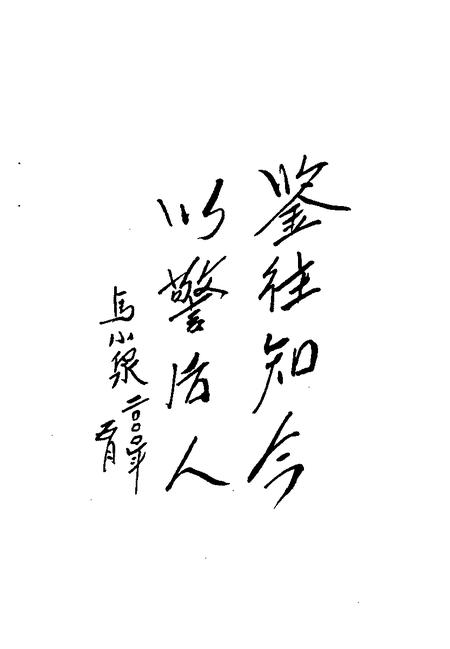 鉴往知今
以警后人
马小泉
二〇〇〇年
五月